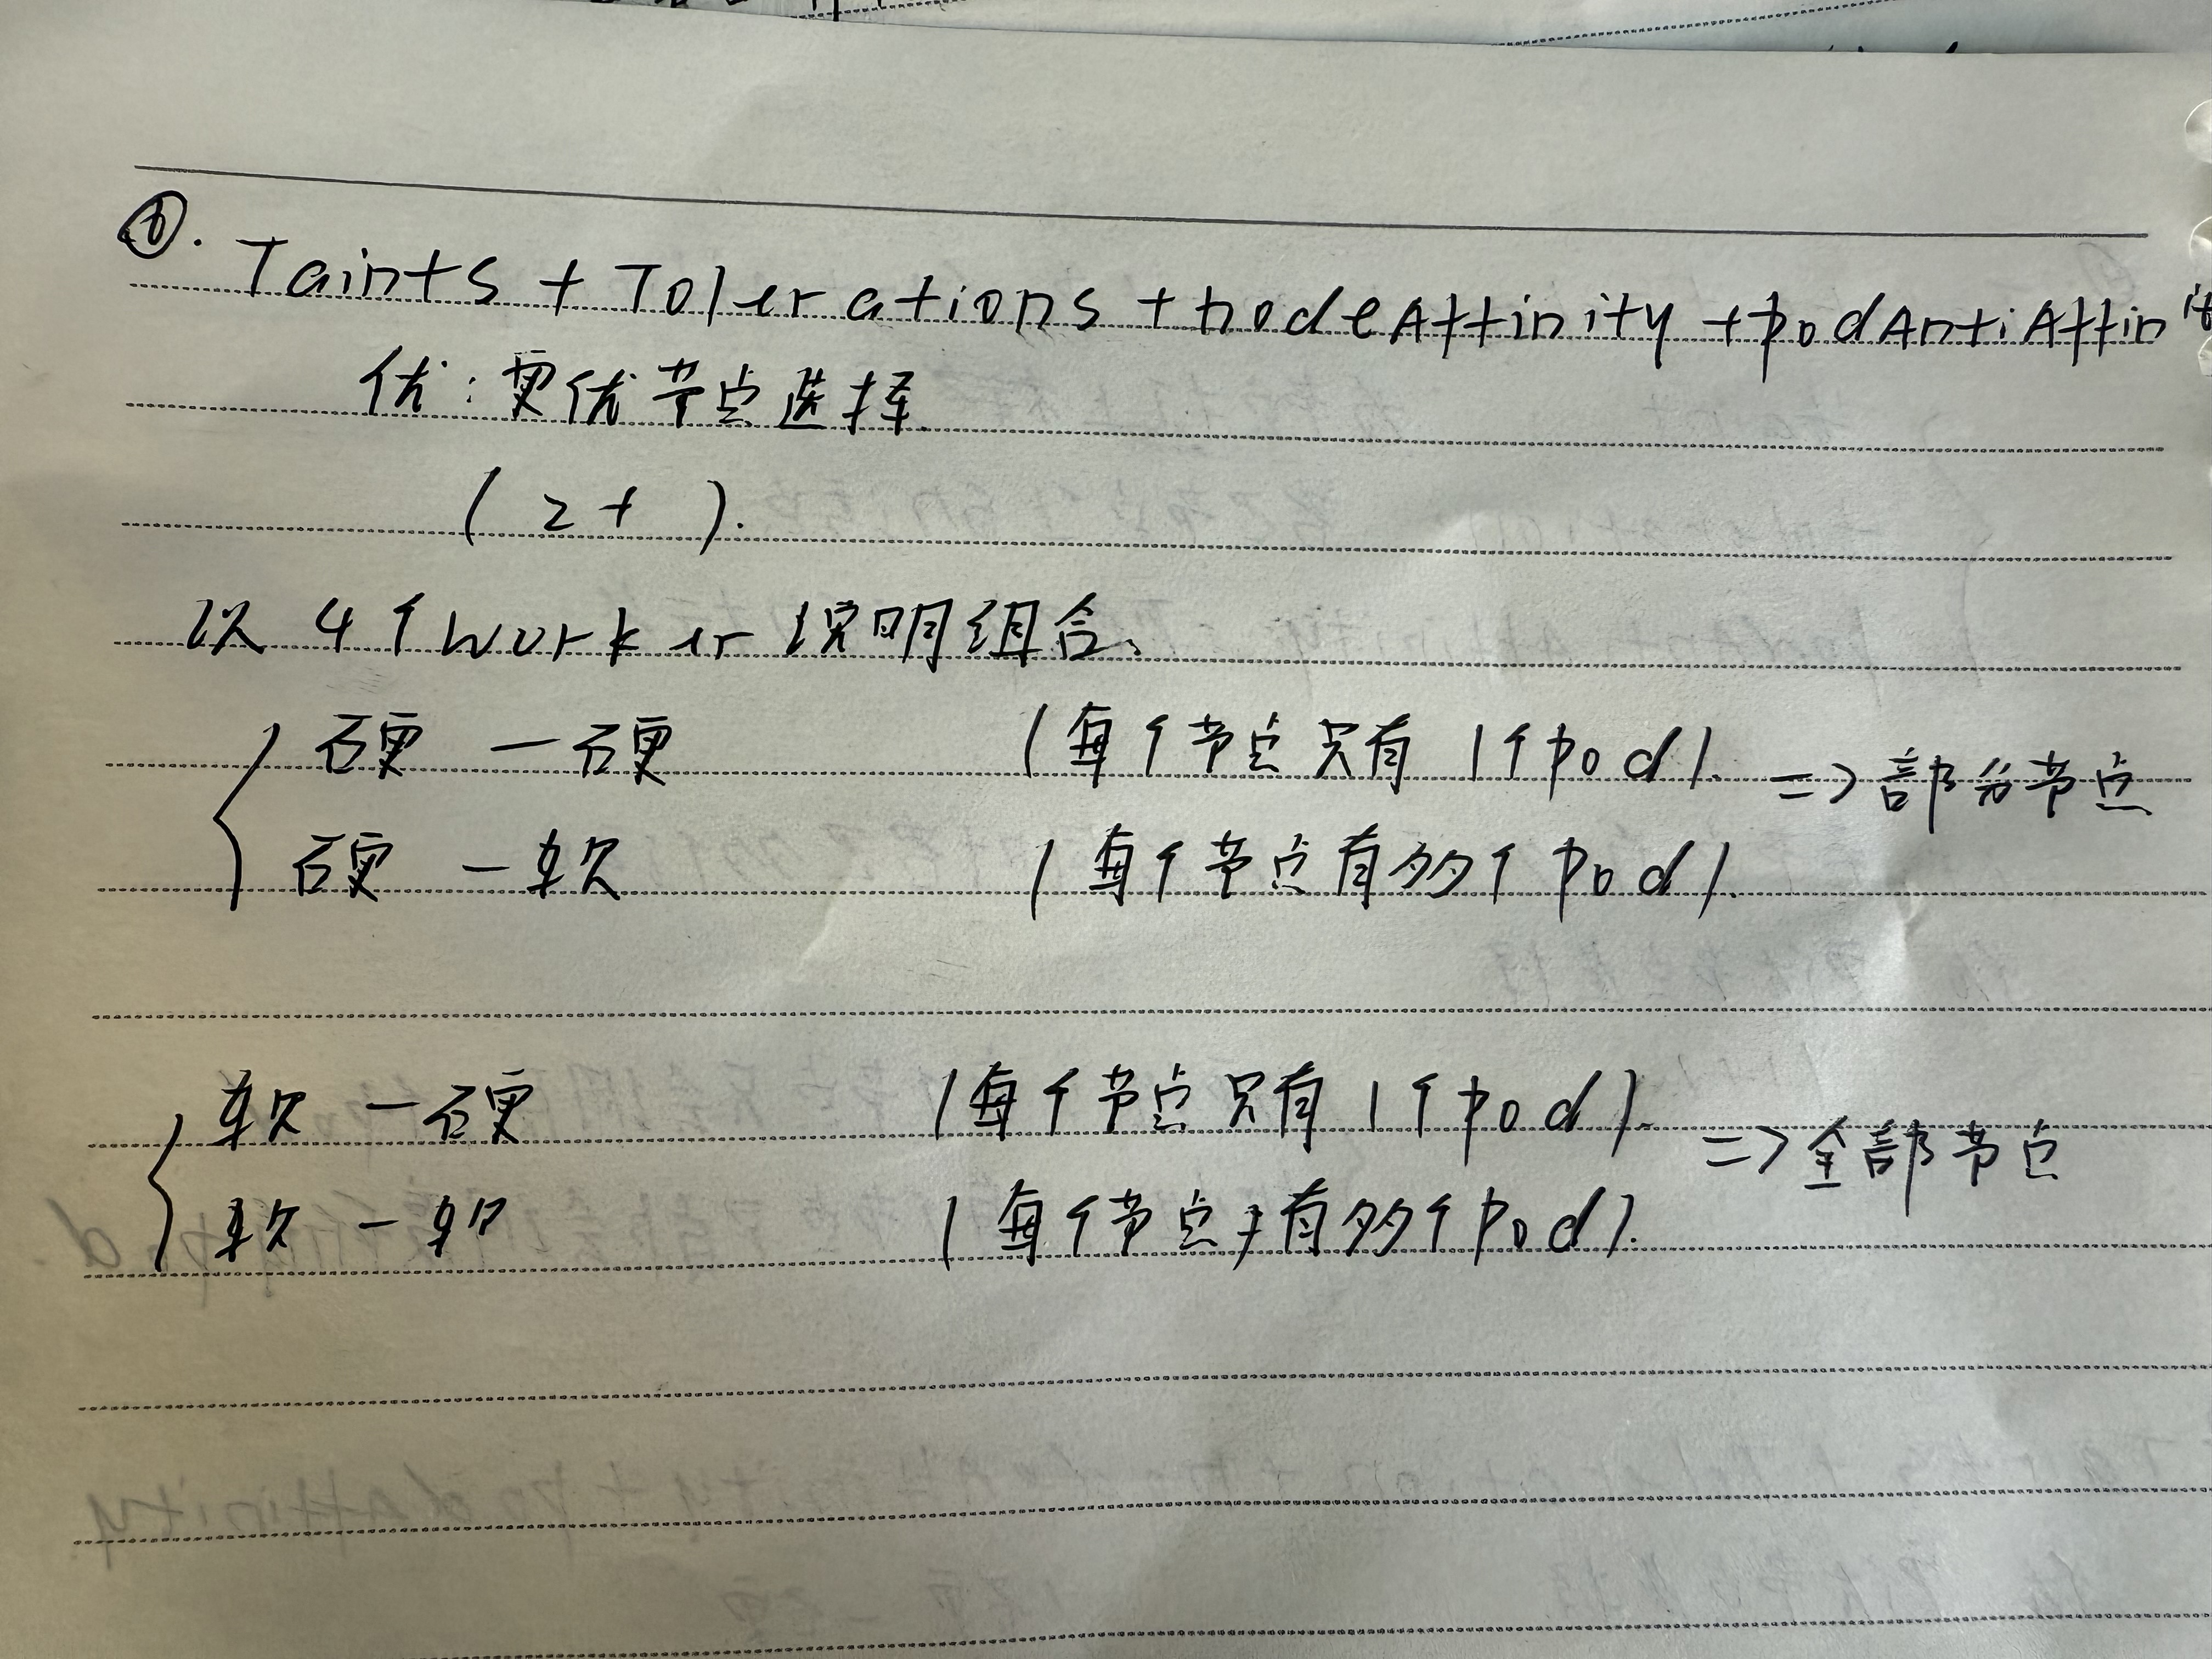 Taints + Tolerations + nodeAffinity + podAntiAffinit
优：更优节点选择.
( 2+ ).
以 4个worker说明组合.
硬 — 硬 (每个节点只有 1个pod). => 部分节点
硬 — 软 (每个节点有多个pod).
软 — 硬 (每个节点只有 1个pod). => 全部节点
软 — 软 (每个节点有多个pod).